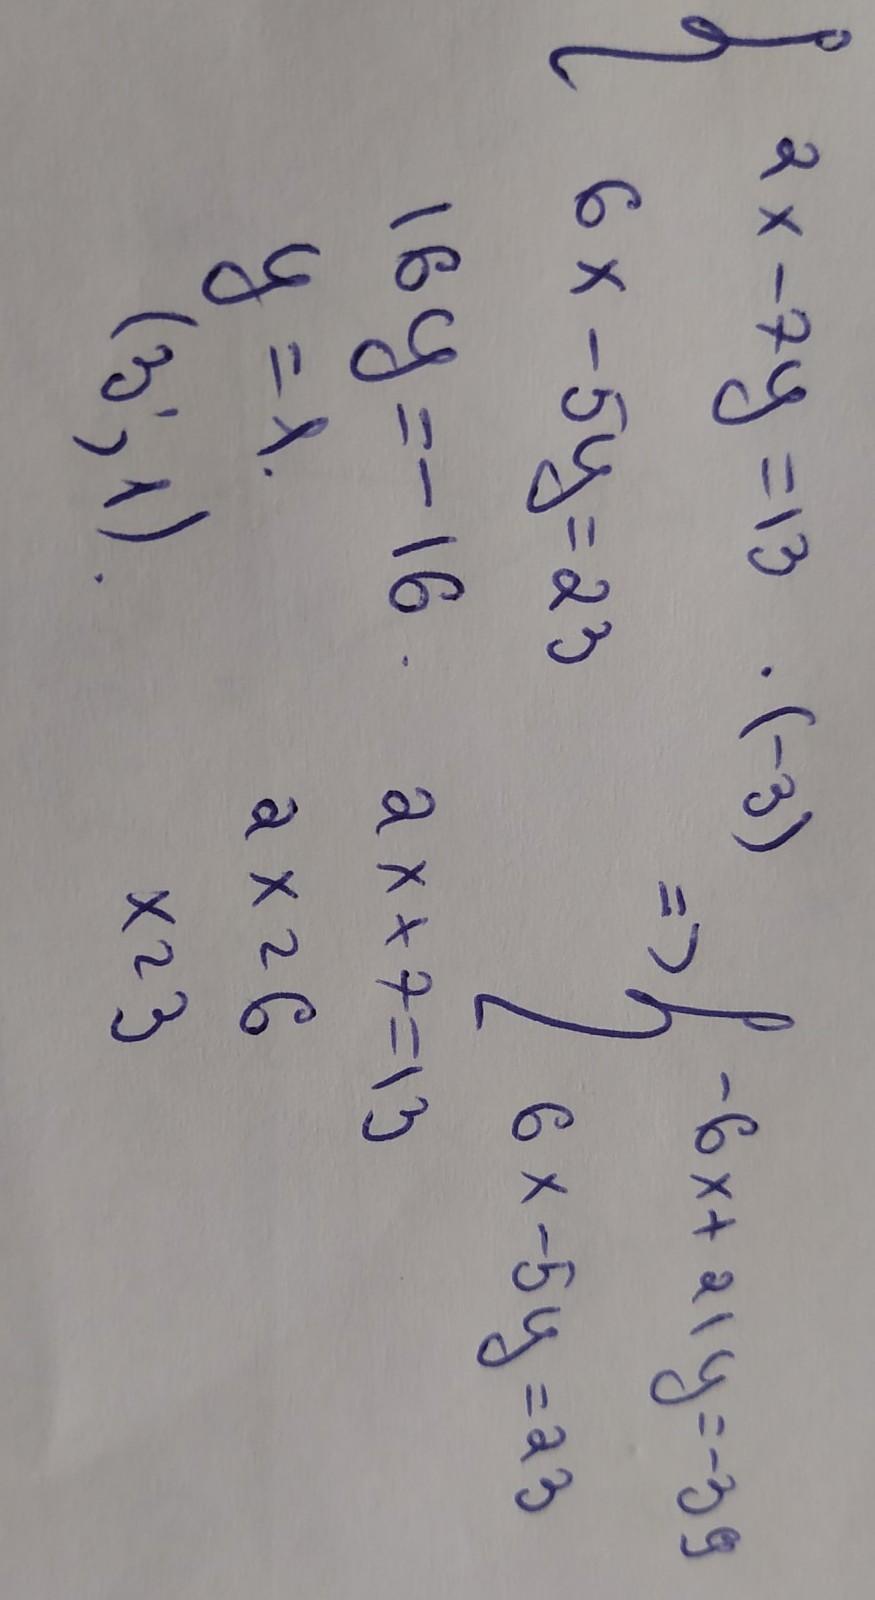 { 2x - 7y = 13 · (-3)
6x - 5y = 23
=> { -6x + 21y = -39
6x - 5y = 23
16y = -16.
y = 1.
(3; 1).
2x + 7 = 13
2x = 6
x = 3